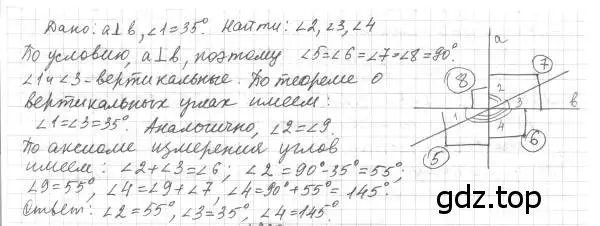 Дано: a⊥b, ∠1=35°. Найти: ∠2, ∠3, ∠4
По условию, a⊥b, поэтому ∠5=∠6=∠7=∠8=90°.
∠1 и ∠3 - вертикальные. По теореме о
вертикальных углах имеем:
∠1=∠3=35°. Аналогично, ∠2=∠9.
По аксиоме измерения углов
имеем: ∠2+∠3=∠6; ∠2=90°-35°=55°;
∠9=55°, ∠4=∠9+∠7, ∠4=90°+55°=145°.
Ответ: ∠2=55°, ∠3=35°, ∠4=145°.
a
7
8
2
b
3
1
4
5
6
gdz.top